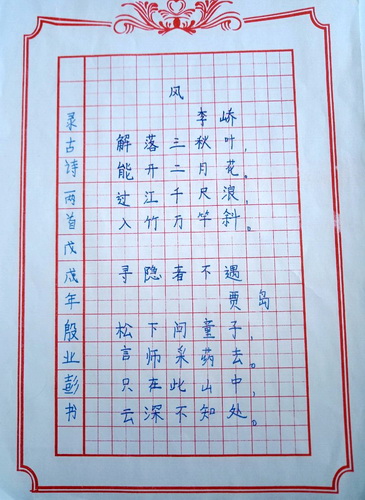 风
李峤
解落三秋叶,
能开二月花。
过江千尺浪,
入竹万竿斜。
寻隐者不遇
贾岛
松下问童子,
言师采药去。
只在此山中,
云深不知处。
录古诗两首戊戌年殷业彭书